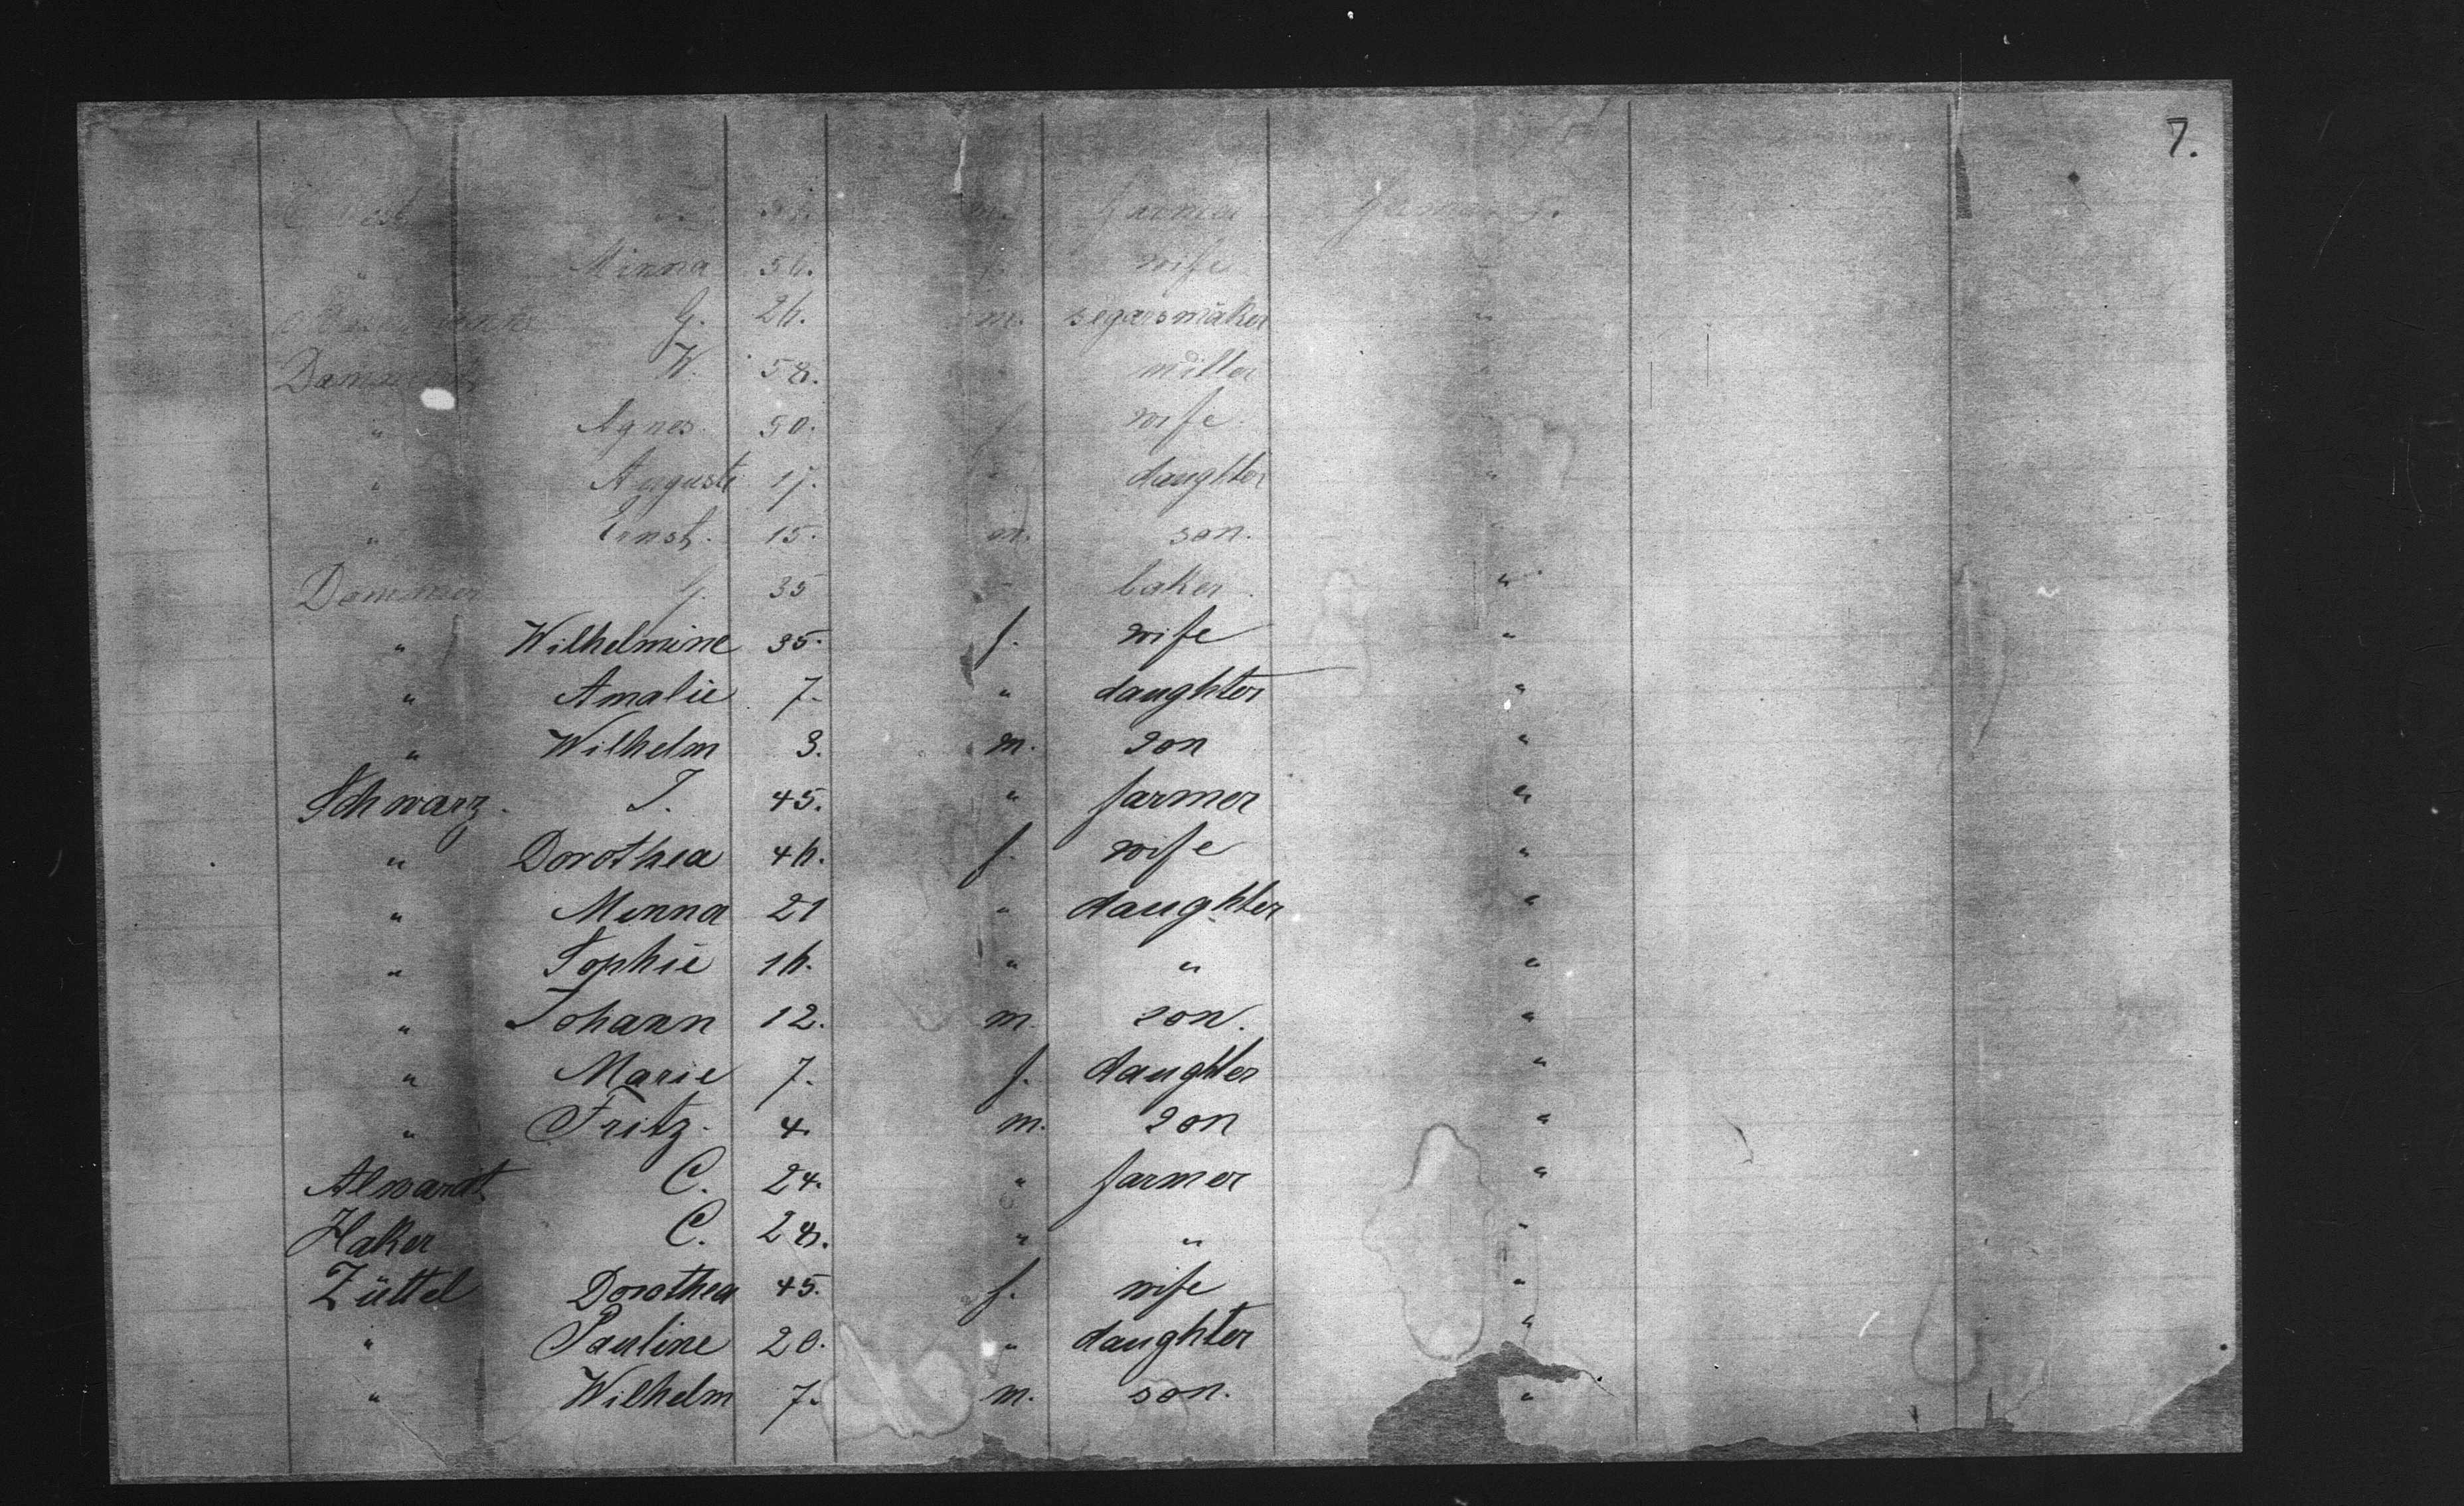 7.
farmer
" Minna 56. f. wife
G. 26. m. segarsmaker "
W. 58. " miller "
" Agnes. 50. f. wife
" Auguste 17. " daughter "
" Ernst. 15. m. son. "
Dammer G. 35 " baker. "
" Wilhelmine 35. f. wife "
" Amalie 7. " daughter "
" Wilhelm 3. m. son "
Schwarz. J. 45. " farmer "
" Dorothea 46. f. wife "
" Minna 21 " daughter "
" Sophie 16. " " "
" Johann 12. m. son. "
" Marie 7. f. daughter "
" Fritz. 4. m. son "
Alwardt C. 24. " farmer "
Haker C. 28. " " "
Züttel Dorothea 45. f. wife "
" Pauline 20. " daughter "
" Wilhelm 7. m. son. "